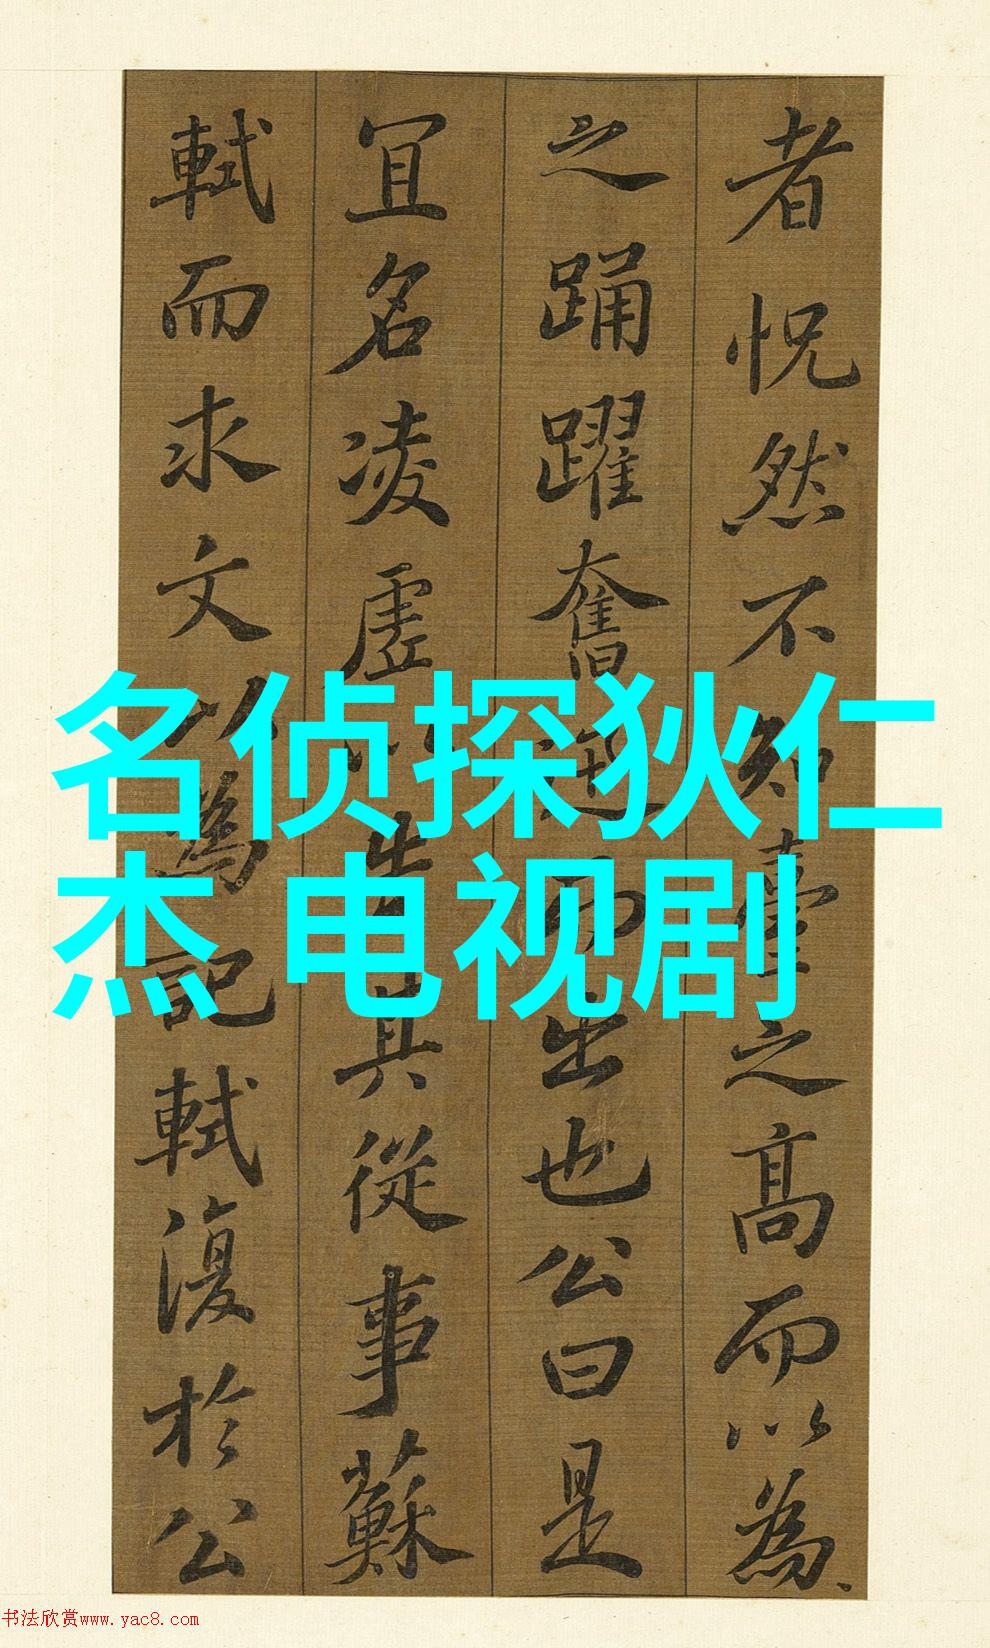 者怳然不知臺之高而以為
之踊躍奮迅而出也公曰是
宜名凌虛以告其從事蘇
軾而求文以為記軾復於公
名侦探狄仁
杰 电视剧
书法欣赏www.yac8.com